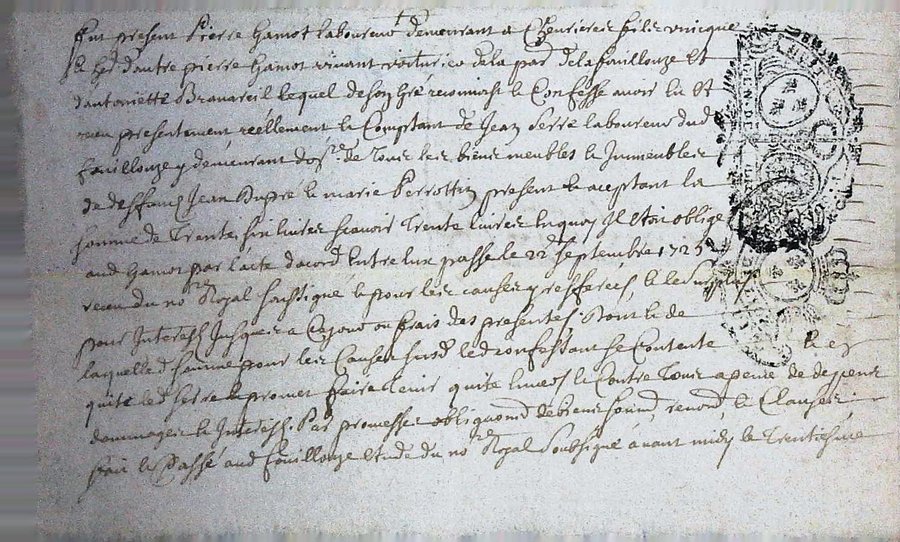 fut present Pierre Gamot laboureur demeurant a Chevrieres fils unicque
& hed d'autre pierre Gamot vivant de la par de la fouillouze et
d'antoinette lequel de son gré reconnoist & Confesse avoir eu et
receu presentement reellement & Comptant de Jean Serre laboureur dud
fouillouze y demeurant de tous les biens meubles & Immeubles
de deffunct Jean Dupre & marie Perrottin present & aceptant la
somme de Trente six livres scavoir Trente livres en quoy Il estoit oblige
aud Gamot par l'acte dacord Entre eux passe le 22e septembre 1725
receu du no.re Royal soussigne & pour les causes y resferees & le surplus
pour Interest Jusques a ce jourd ou frais des presentes. Dont & de
laquelle d somme pour les Causes susd led confessant se Contente & en
quite led Serre & promet faire tenir quite envers & Contre Tous a peine de depens
dommages & Interest. Par promesse obligaon de biens soumd renond & Clauses
fait & Passé aud fouillouze estude du no.re Royal Soubsigné avant midy le Trentiesme